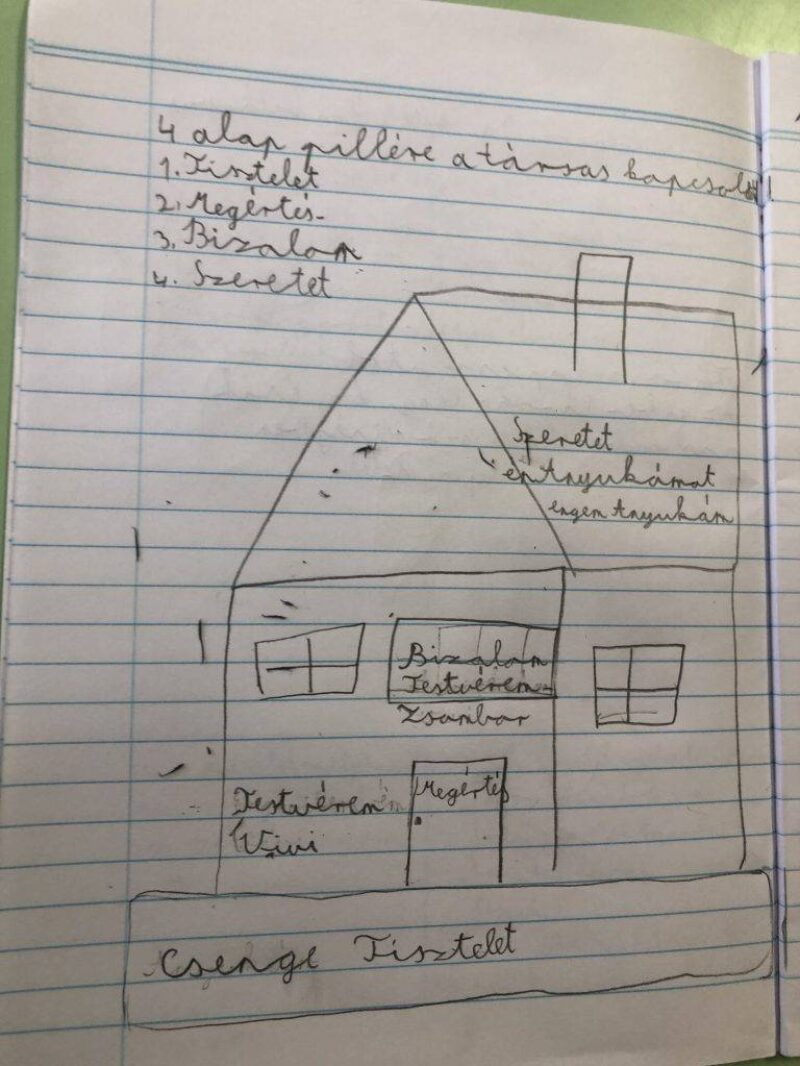 4 alap pillére a társas kapcsolat!
1. Tisztelet
2. Megértés
3. Bizalom
4. Szeretet
Szeretet
én Anyukámat
engem Anyukám
Bizalom
Testvérem
Zsombor
Megértés
Testvérem
Vivi
Csenge Tisztelet